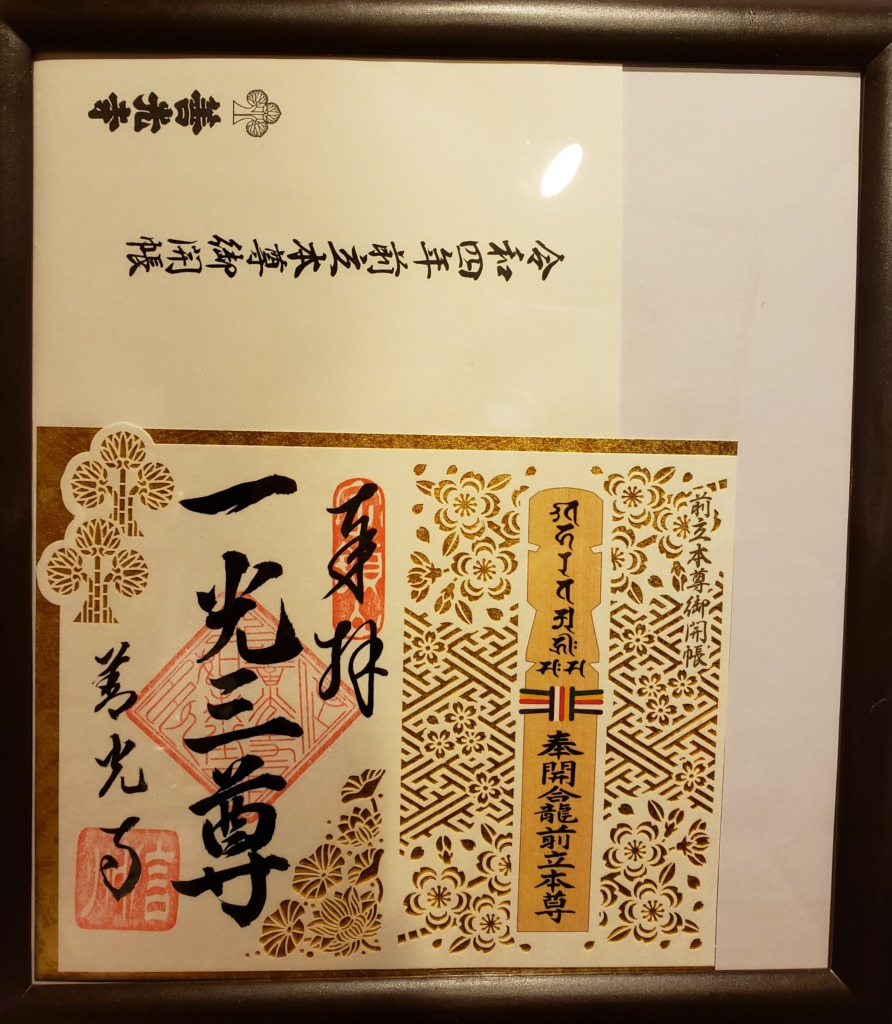 善光寺
令和四年前立本尊御開帳
前立本尊御開帳
奉開龕前立本尊
奉拝
一光三尊
善光寺